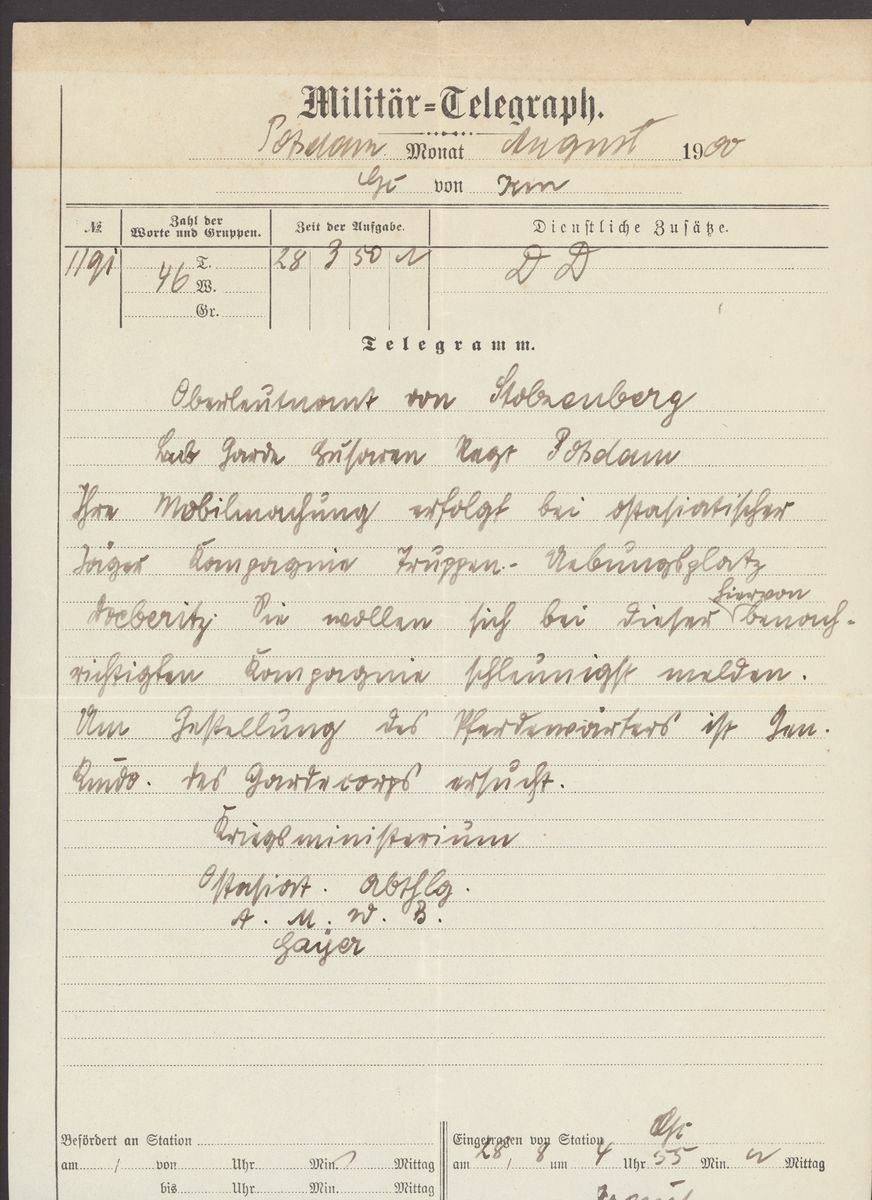 Militär=Telegraph.
Potsdam Monat August 1900
von
№ Zahl der Worte und Gruppen. Zeit der Aufgabe. Dienstliche Zusätze.
46 T. 28 3 50 N D D
W.
Gr.
Telegramm.
Oberleutnant von Stolzenberg
Leib Garde Husaren Regt Potsdam
Ihre Mobilmachung erfolgt bei ostasiatischer
Jäger Kompagnie Truppen-Uebungsplatz
Doeberitz. Sie wollen sich bei dieser hiervon benach-
richtigten Kompagnie schleunigst melden.
Um Gestellung des Pferdewärters ist Gen.
Kmdo. des Gardecorps ersucht.
Kriegsministerium
Ostasiat. Abthlg.
A. M. W. B.
Gayer
Befördert an Station
am / von Uhr Min. Mittag
bis Uhr Min. Mittag
Eingetragen von Station
am 28/8 um 4 Uhr 55 Min. N Mittag